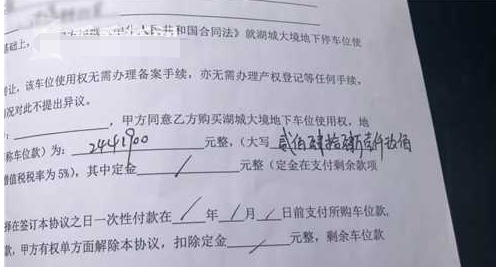 基础上，人民共和国合同法》就湖城大境地下停车位使
转让，该车位使用权无需办理备案手续，亦无需办理产权登记等任何手续，
情况对此不提出异议。
，甲方同意乙方购买湖城大境地下车位使用权，地
称车位款）为：2441900元整，（大写 贰佰肆拾肆
增值税税率为5%），其中定金 / 元整（定金在支付剩余款项
择在签订本协议之日一次性付款在 / 年 / 月 / 日前支付所购车位款
款，甲方有权单方面解除本协议，扣除定金 / 元整，剩余车位款